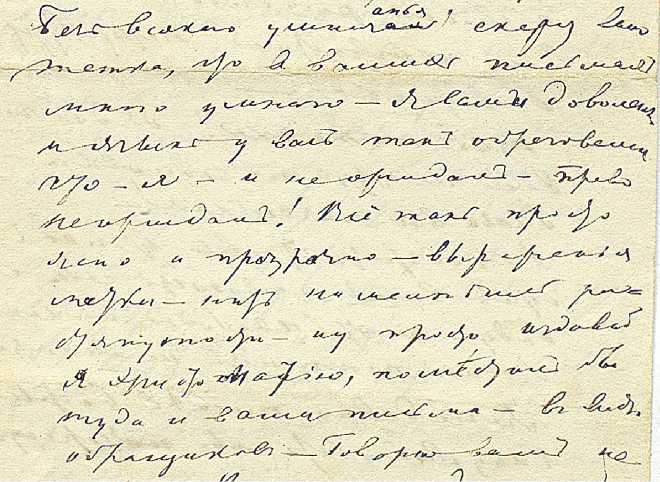 Безъ всякаго умничанья скажу Вамъ
тетка, что въ вашихъ письмахъ
много умнаго — я вами доволенъ
и языкъ у васъ такъ
что — я — и не ожидалъ — право
не ожидалъ! Всё такъ просто
ясно и прозрачно — выраженія
мѣтки — нѣтъ ни малѣйшей ра-
стянутости — ну просто издавай
я христоматію, помѣстилъ бы
туда и ваши письма — въ видѣ
образчиковъ — Говорю вамъ не